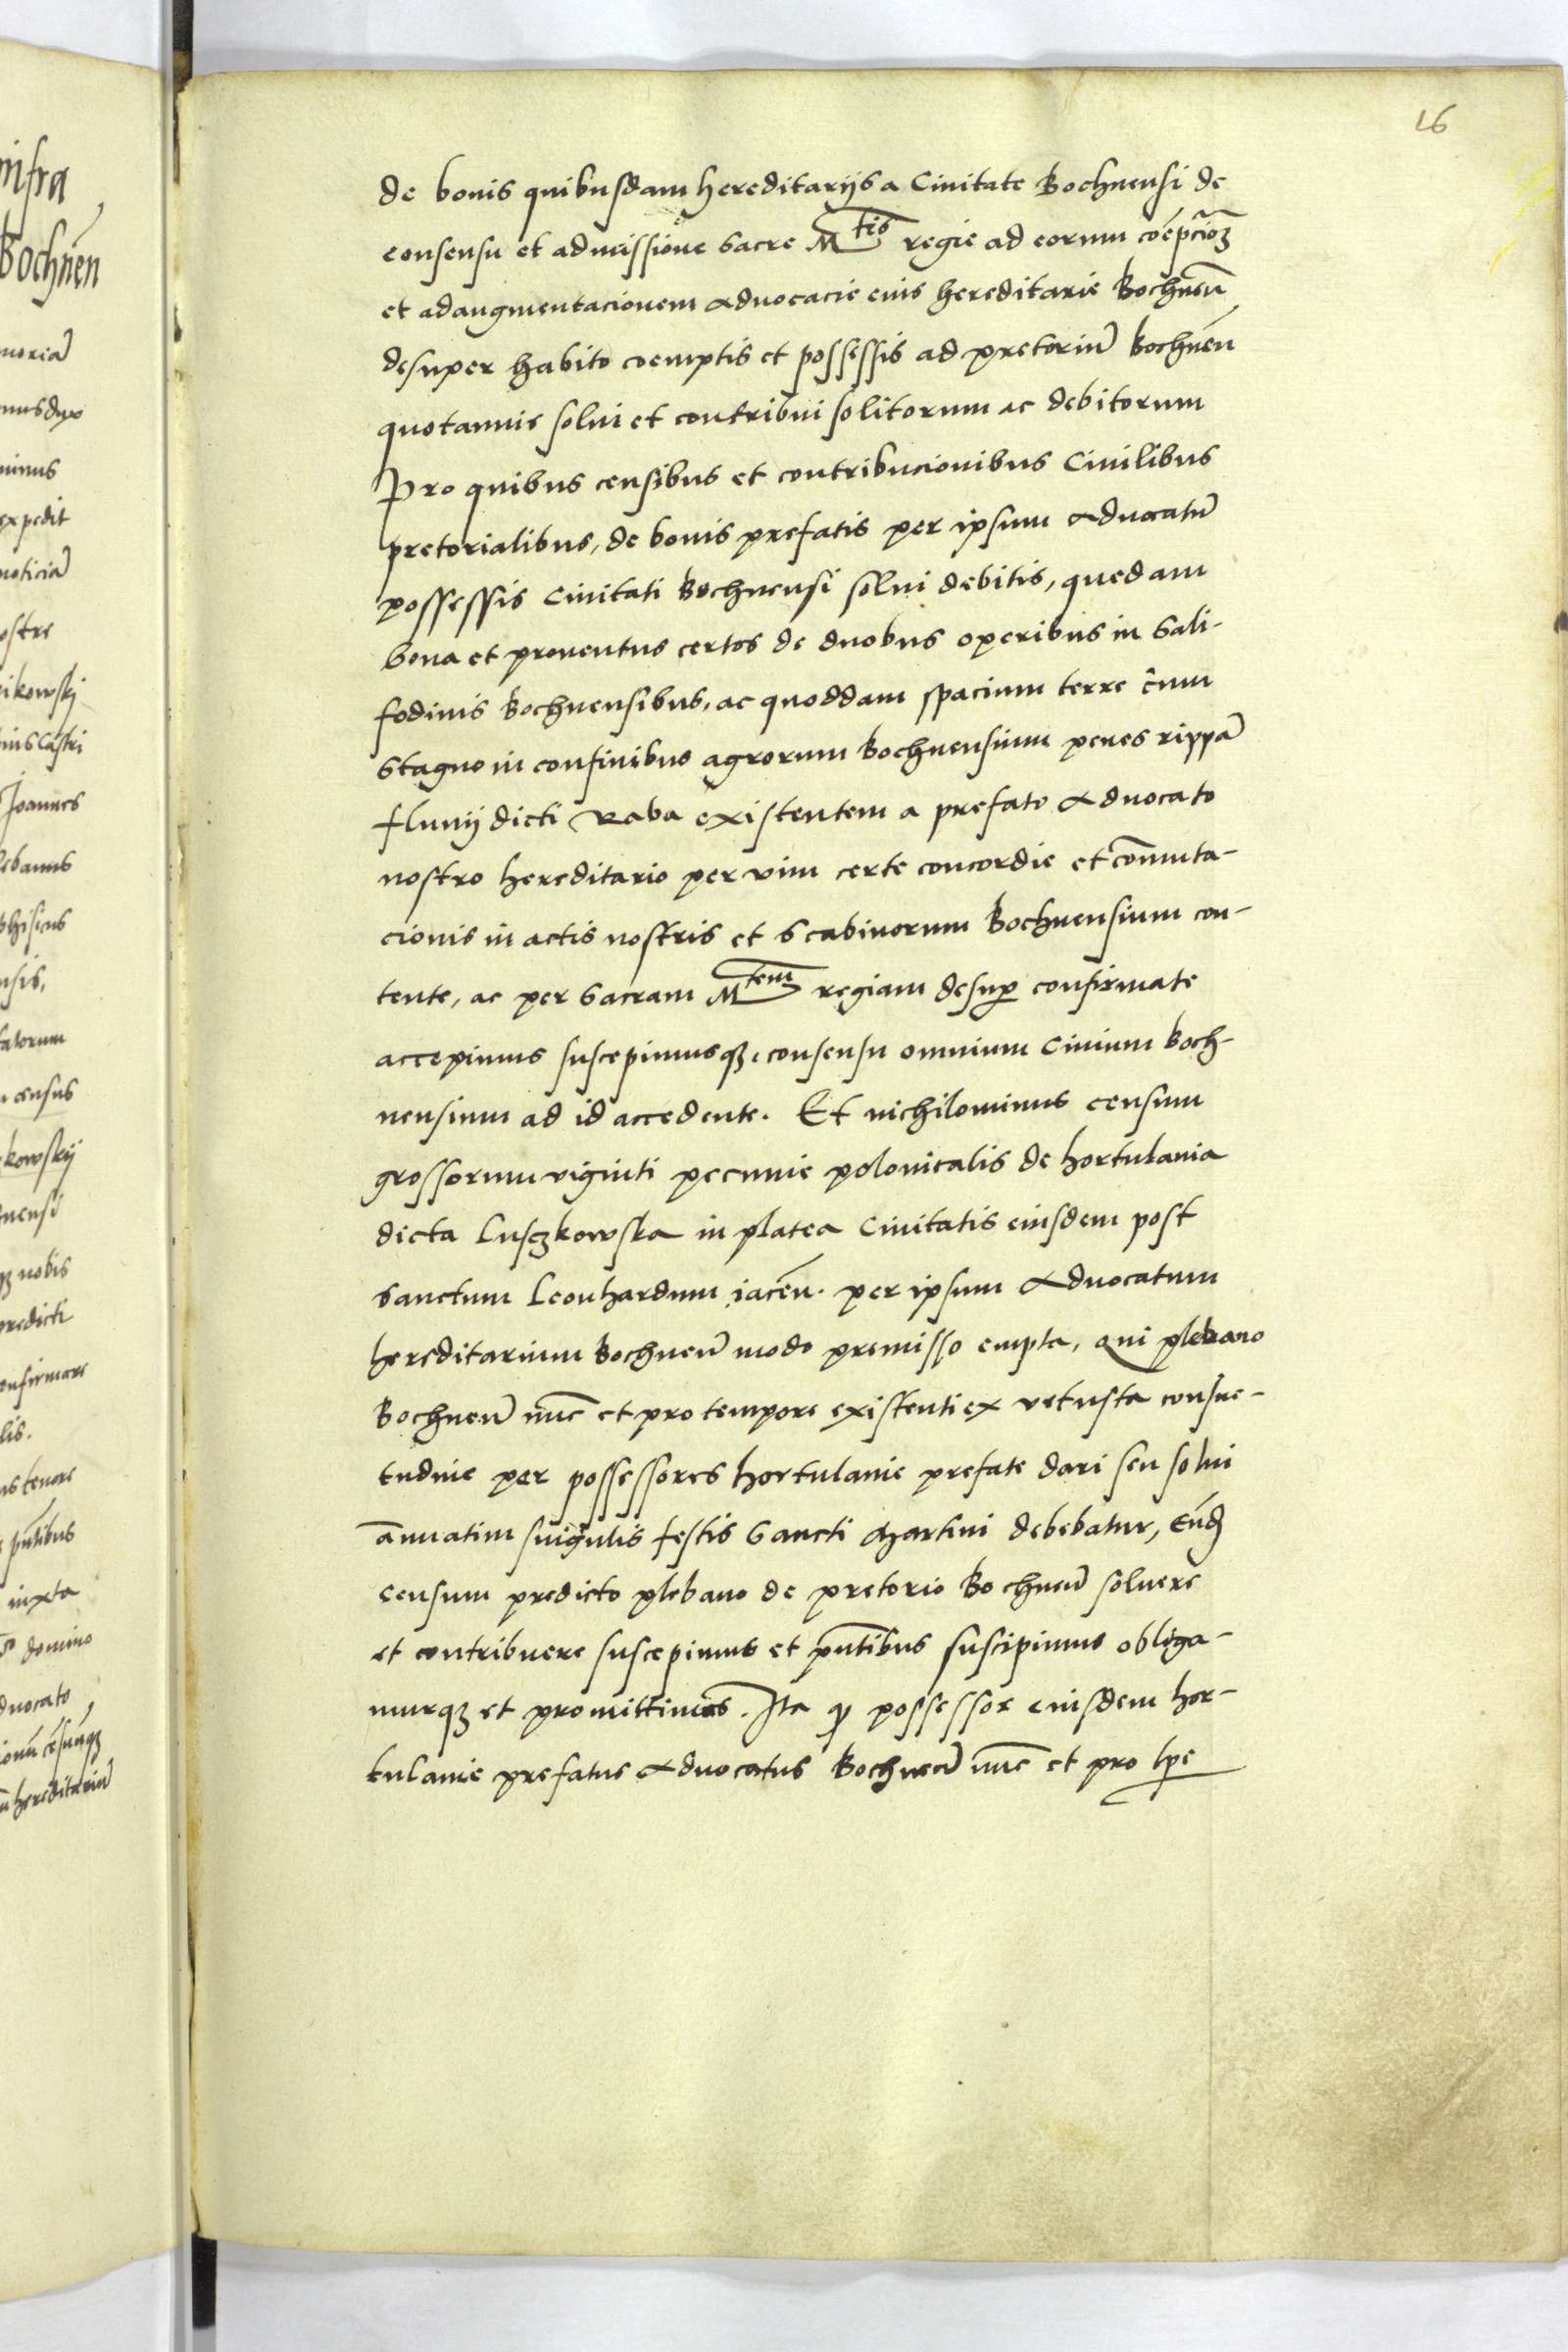 16
de bonis quibusdam hereditarijs a Ciuitate Bochnensi de
consensu et admissione Sacre Mtis regie ad eorum coēpcioēȝ
et adaugmentacionem Aduocacie eius hereditarie Bochneñ
desuper habito coemptis et possessis ad pretoriū Bochneñ
quotannis solui et contribui solitorum ac debitorum
Pro quibus censibus et contribucionibus Ciuilibus
pretorialibus, de bonis prefatis per ipsum Aduocatū
possessis Ciuitati Bochnensi solui debitis, quedam
bona et prouentus certos de duobus operibus in Sali-
fodinis Bochnensibus, ac quoddam spacium terre cum
Stagno in confinibus agrorum Bochnensium penes rippā
fluuij dicti Raba existentem a prefato Aduocato
nostro hereditario per vim certe concordie et cōmuta-
cionis in actis nostris et Scabinorum Bochnensium con-
tente, ac per Sacram Mtem regiam desuꝑ confirmate
accepimus suscepimusqȝ, consensu omnium Ciuium Boch-
nensium ad id accedente. Et nichilominus censum
grossorum viginti pecunie polonicalis de hortulania
dicta Lusczkowska in platea Ciuitatis eiusdem post
Sanctum Leonhardum iaceñ. per ipsum Aduocatum
hereditarium Bochneñ modo premisso empta, qui plebano
Bochneñ nūc et pro tempore existenti ex vetusta consue-
tudine per possessores hortulanie prefate dari seu solui
annuatim singulis festis Sancti Martini debebatur,
censum predicto plebano de pretorio Bochneñ soluere
et contribuere suscepimus et pñtibus suscipimus obliga-
murqȝ et promittimus. Ita ꝙ possessor eiusdem hor-
tulanie prefatus Aduocatus Bochneñ nūc et pro tpe